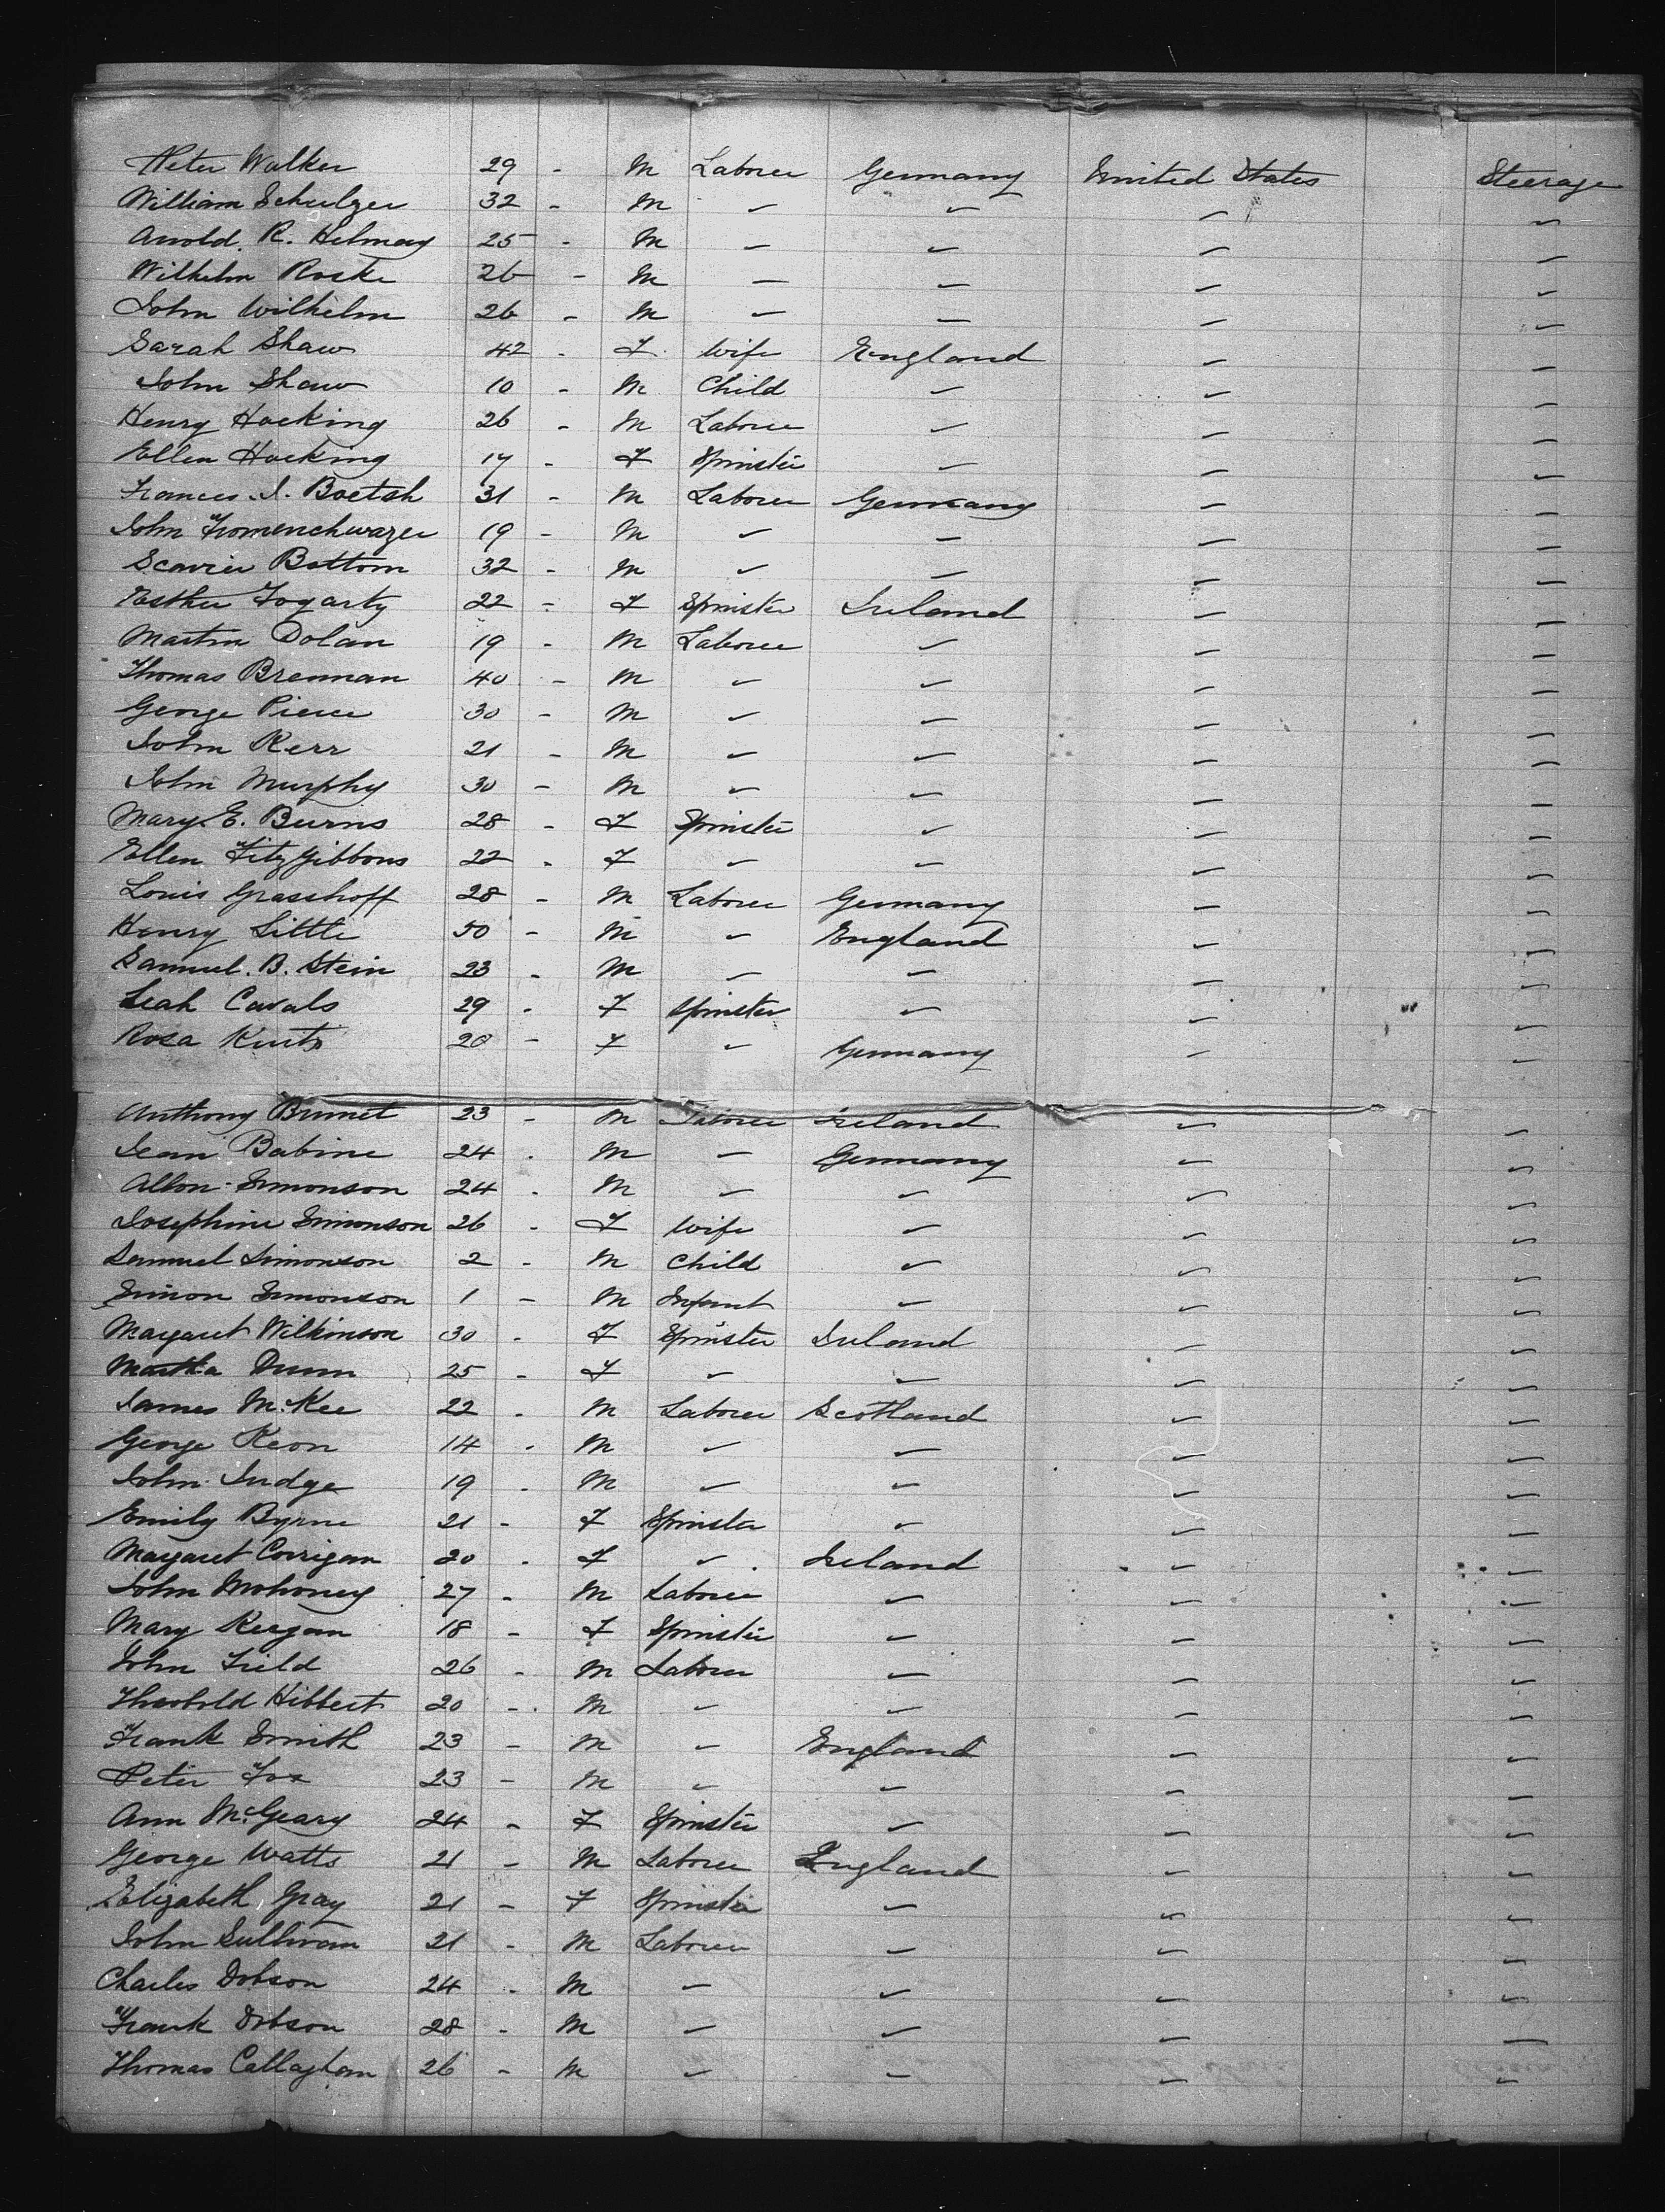 Peter Walker 29 - M Laborer Germany United States Steerage
William Schulzer 32 - M " " " "
Arnold. R. Helmay 25 - M " " " "
Wilhelm Roske 26 - M " " " "
John Wilhelm 26 - M " " " "
Sarah Shaw 42 - F Wife England " "
John Shaw 10 - M Child " " "
Henry Hocking 26 - M Laborer " " "
Ellen Hocking 17 - F Spinster " " "
Frances. J. Boetsh 31 - M Laborer Germany " "
John 19 - M " " " "
Bottom 32 - M " " " "
Esther Fogarty 22 - F Spinster Ireland " "
Martin Dolan 19 - M Laborer " " "
Thomas Brennan 40 - M " " " "
George Pierce 30 - M " " " "
John Kerr 21 - M " " " "
John Murphy 30 - M " " " "
Mary. E. Burns 28 - F Spinster " " "
Ellen FitzGibbons 22 - F " " " "
Louis Grasshoff 28 - M Laborer Germany " "
Henry Little 50 - M " England " "
Samuel. B. Stein 23 - M " " " "
Leah Cavals 29 - F Spinster " " "
Rosa Kurtz 20 - F " Germany " "
Anthony Brunet 23 - M Laborer Ireland " "
Jean Babine 24 - M " Germany " "
Albon Simonson 24 - M " " " "
Josephine Simonson 26 - F Wife " " "
Samuel Simonson 2 - M Child " " "
Simon Simonson 1 - M Infant " " "
Margaret Wilkinson 30 - F Spinster Ireland " "
Martha Dunn 25 - F " " " "
James McKee 22 - M Laborer Scotland " "
George Keon 14 - M " " " "
John Judge 19 - M " " " "
Emily Byrne 21 - F Spinster " " "
Margaret Corrigan 20 - F " Ireland " "
John Mohoney 27 - M Laborer " " "
Mary Keegan 18 - F Spinster " " "
John Field 26 - M Laborer " " "
Theobold Hibbert 20 - M " " " "
Frank Smith 23 - M " England " "
Peter Fox 23 - M " " " "
Ann McGeary 24 - F Spinster " " "
George Watts 21 - M Laborer England " "
Elizabeth Gray 21 - F Spinster " " "
John Sullivan 21 - M Laborer " " "
Charles Dobson 24 - M " " " "
Frank Dobson 28 - M " " " "
Thomas Callaghan 26 - M " " " "